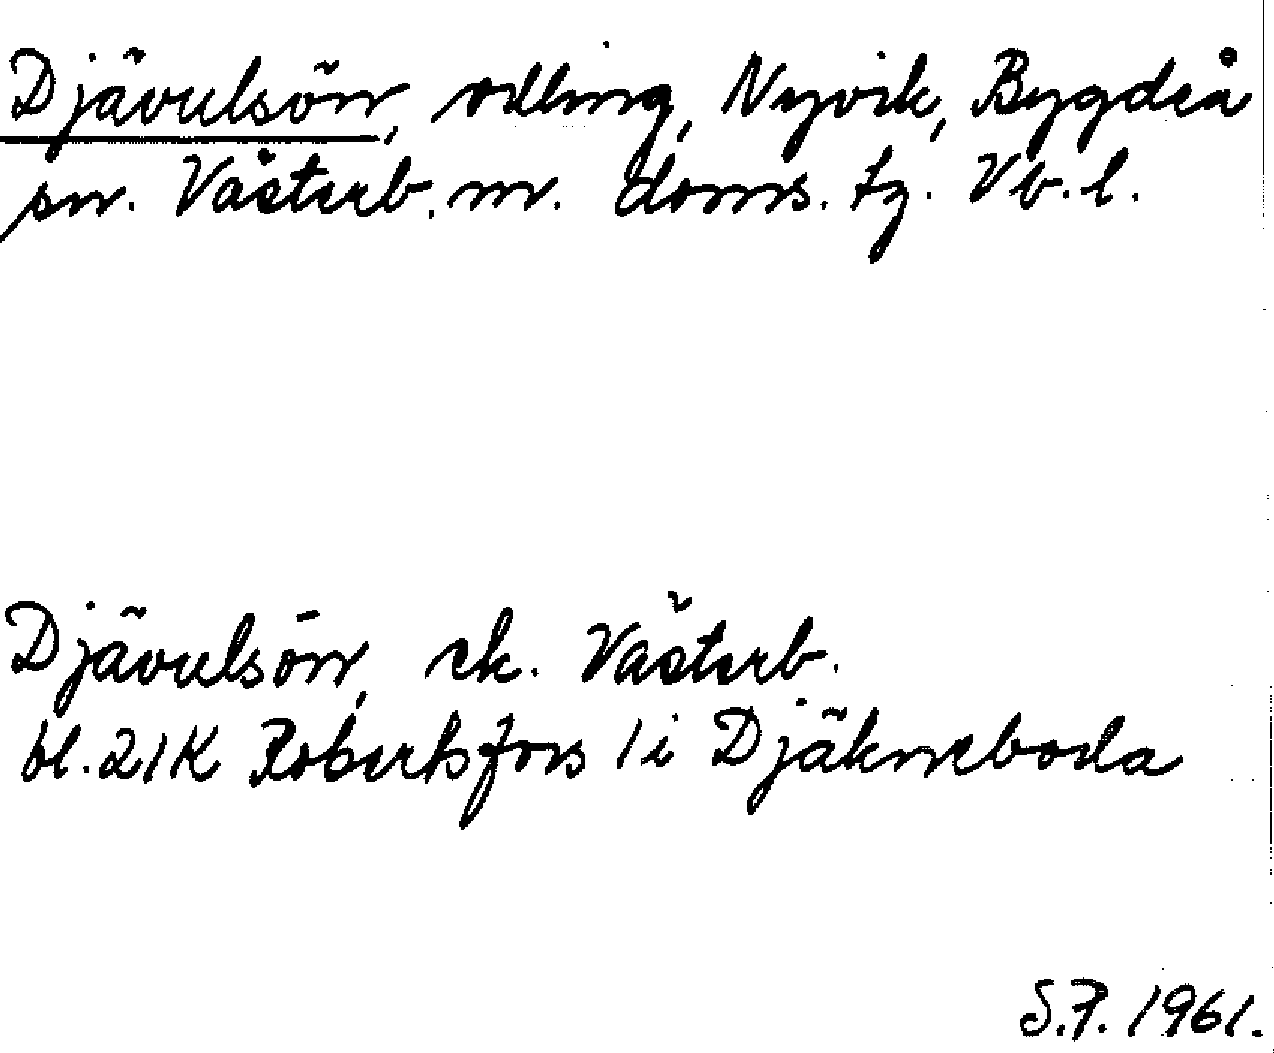 Djävulsön, odling, Nyvik, Bygdeå
sn. Västerb. n. doms. tg. Vb. l.
Djävulsön, ek. Västerb.
bl. 21K Robertsfors 1 i Djäkneboda
S.F. 1961.